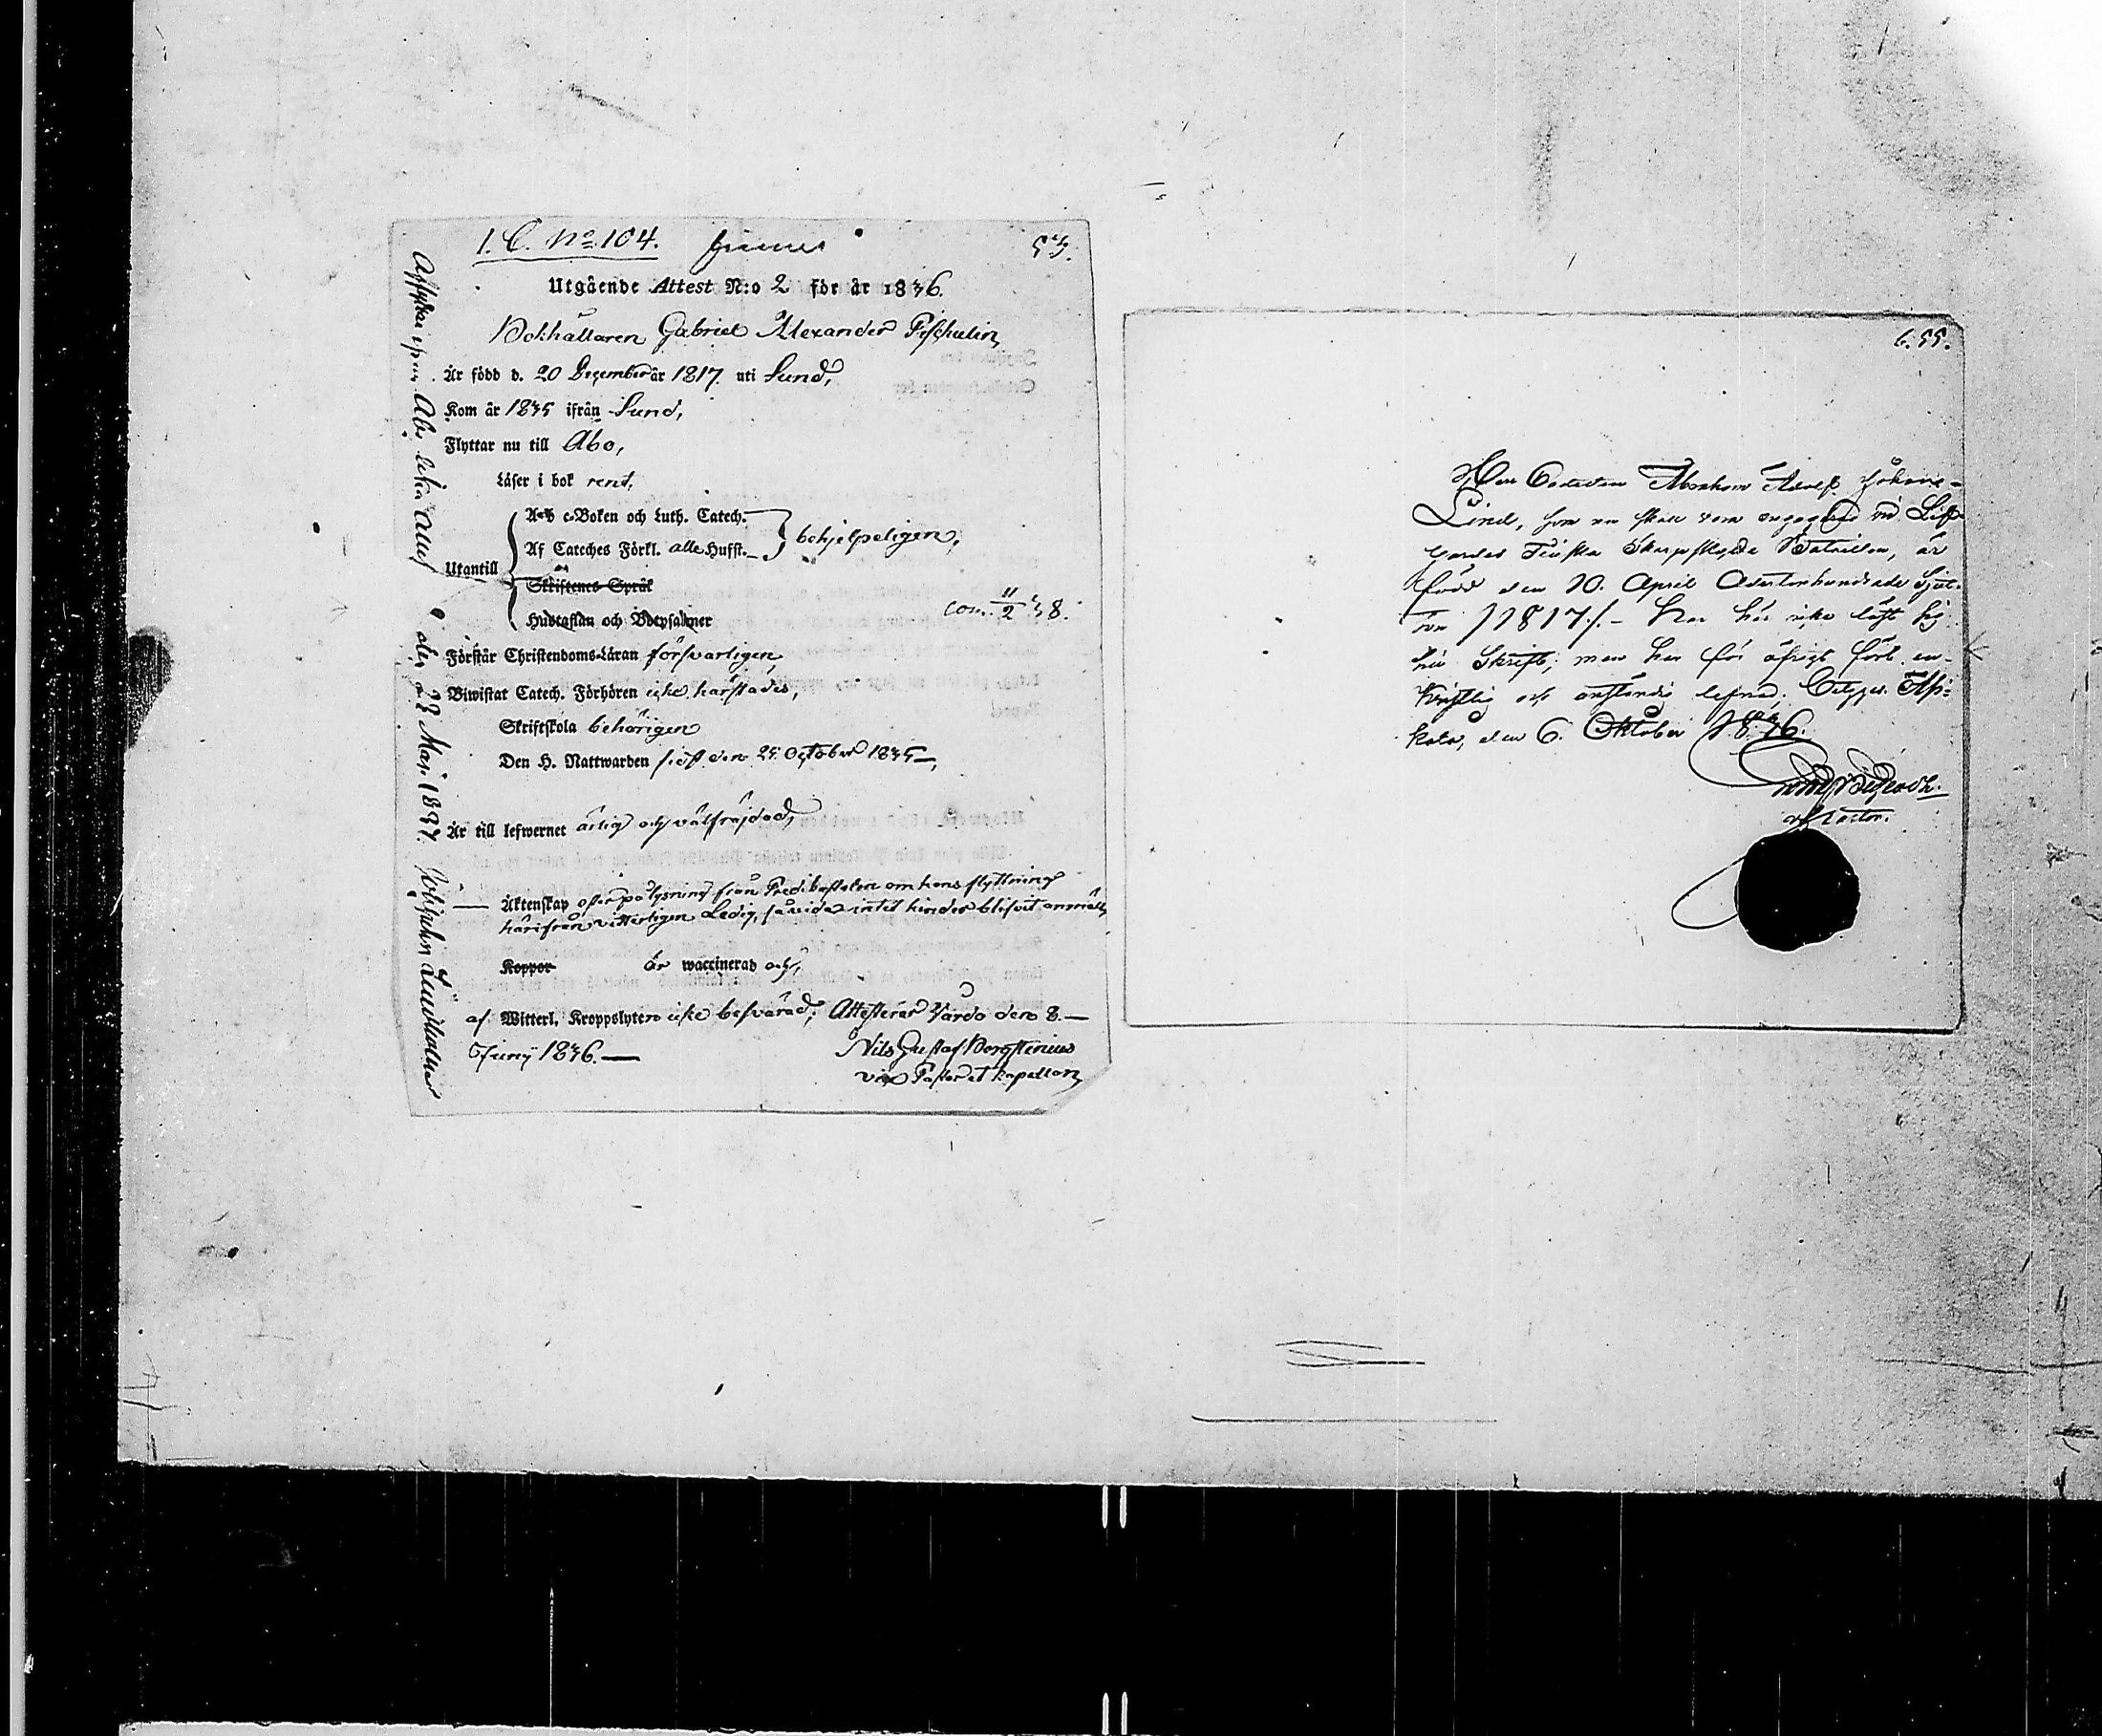 1. C. No. 104.
53.
Utgående Attest N:o 2 för år 1836.
Bokhållaren Gabriel Alexander Pischulin,
Är född d. 20 December år 1817. uti Sund,
Kom år 1835 ifrån Sund,
Flyttar nu till Åbo,
Läser i bok rent,
Utantill
A-b c-Boken och Luth. Catech.
Af Cateches Förkl. alla Husst.
behjelpeligen,
Skriftenes Språk
Hustaflan och Botpsalmer
com. 11/2 38.
Förstår Christendoms-Läran försvarligen,
Biwistat Catech. Förhören icke härstädes,
Skriftskola behörigen
Den H. Nattwarden sist den 25 October 1835,
Är till lefwernet ärlig och välfräjdad,
Äktenskap efter pålysning från Predikstolen om hans flyttning
härifrån vitterligen Ledig, såvida intet hinder blifvit anmält,
Koppor är waccinerad och,
af Witterl. Kroppslyten icke besvärad; Attesterar Vårdö den 8.
Juny 1836.
Nils Gustaf Bergstenius
vice Pastor et Kapellan
den 22 Maj 1837.
6.55.
Herr Cadetten Abraham Adolf
Lind, som nu skall vara engagerad vid Lif-
Gardes Finska Skarpskytte Bataillon, är
född den 10. April Adertonhundrade Sjut-
ton /1817/. – Har här icke läst sig
till Skrift; men har för öfrigt fört en
Kristlig och anständig lefnad;
den 6. Oktober 1836.
Pastor.